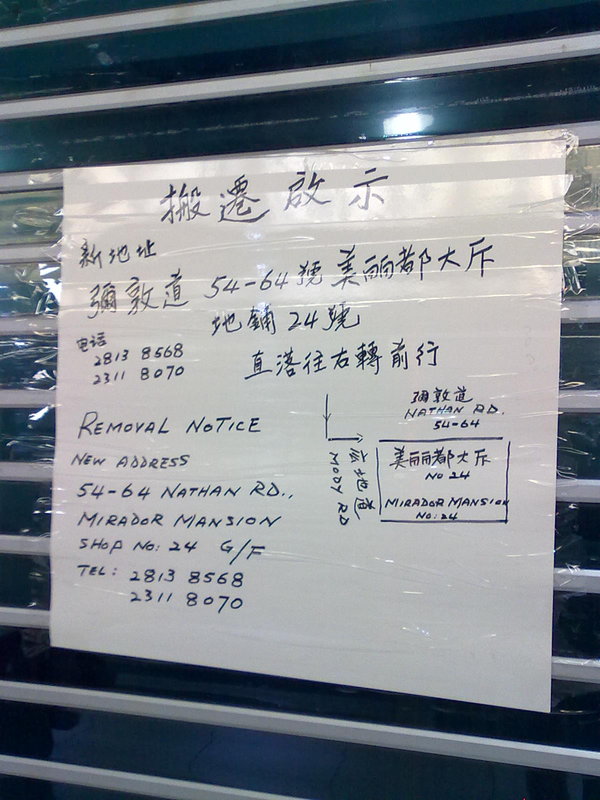 搬遷啟示
新地址
彌敦道 54-64號美丽都大斥
地鋪24號
电话
2813 8568
2311 8070
直落往右轉前行
REMOVAL NOTICE
NEW ADDRESS
54-64 NATHAN RD.,
MIRADOR MANSION
SHOP NO: 24 G/F
TEL: 2813 8568
2311 8070
彌敦道
NATHAN RD.
54-64
美丽都大斥
NO 24
MIRADOR MANSION
NO: 24
MODY RD